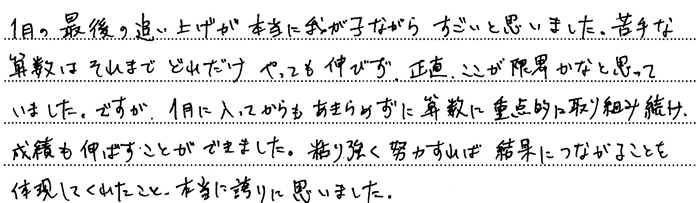 1月の最後の追い上げが本当に我が子ながらすごいと思いました。苦手な
算数はそれまでどれだけやっても伸びず、正直、ここが限界かなと思って
いました。ですが、1月に入ってからもあきらめずに算数に重点的に取り組み続け、
成績も伸ばすことができました。粘り強く努力すれば結果につながることを
体現してくれたこと、本当に誇りに思いました。